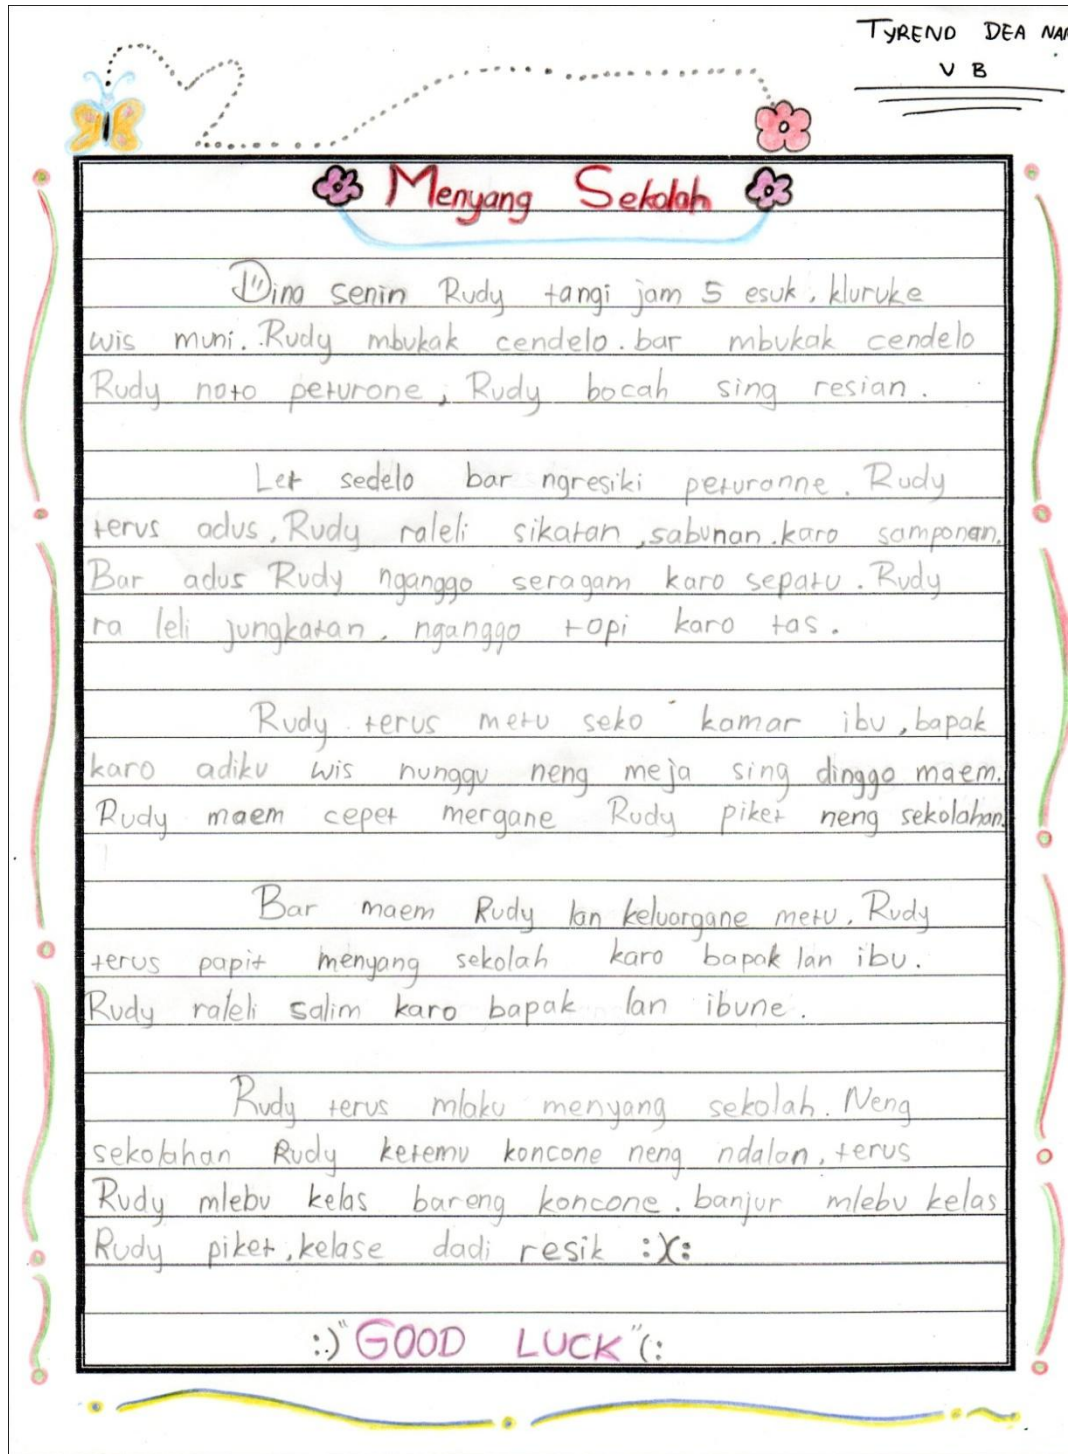 TYREND DEA
V B
Menyang Sekolah
Dino senin Rudy tangi jam 5 esuk, kluruke
wis muni. Rudy mbukak cendelo. bar mbukak cendelo
Rudy noto peturone, Rudy bocah sing resian.
Let sedelo bar ngresiki peturonne. Rudy
terus adus, Rudy raleli sikatan, sabunan. karo samponan.
Bar adus Rudy nganggo seragam karo sepatu. Rudy
ra leli jungkatan, nganggo topi karo tas.
Rudy terus metu seko kamar ibu, bapak
karo adiku wis nunggu neng meja sing dinggo maem.
Rudy maem cepet mergane Rudy piket neng sekolahan.
Bar maem Rudy lan keluargane metu. Rudy
terus papit menyang sekolah karo bapak lan ibu.
Rudy raleli salim karo bapak lan ibune.
Rudy terus mlaku menyang sekolah. Neng
sekolahan Rudy ketemu koncone neng ndalan, terus
Rudy mlebu kelas bareng koncone. banjur mlebu kelas
Rudy piket, kelase dadi resik :X:
:)"GOOD LUCK"(: